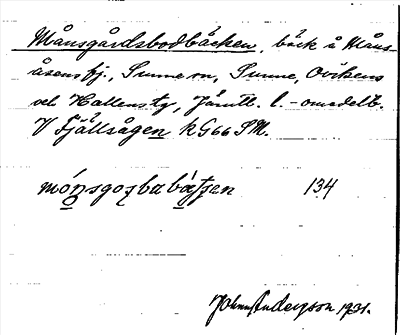 Månsgårdsbodbäcken, bäck å Måns-
åsens bj., Sunne sn, Sunne, Ovikens
och Hallens tg, Jämtl. l. - omedelb.
V Fjällsågen k G66 SM.
mónsgoʂbabätʃen 134
John Andersson 1931.